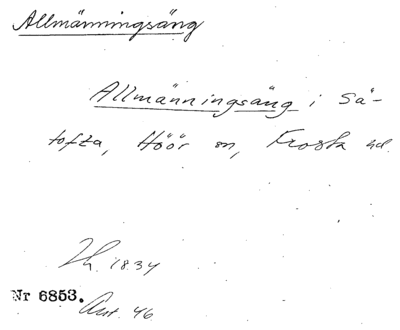 Allmänningsäng
Allmänningsäng i Sä-
tofta, Höör sn, Frosta hd.
1834
Nr 6853.
Ant. 46